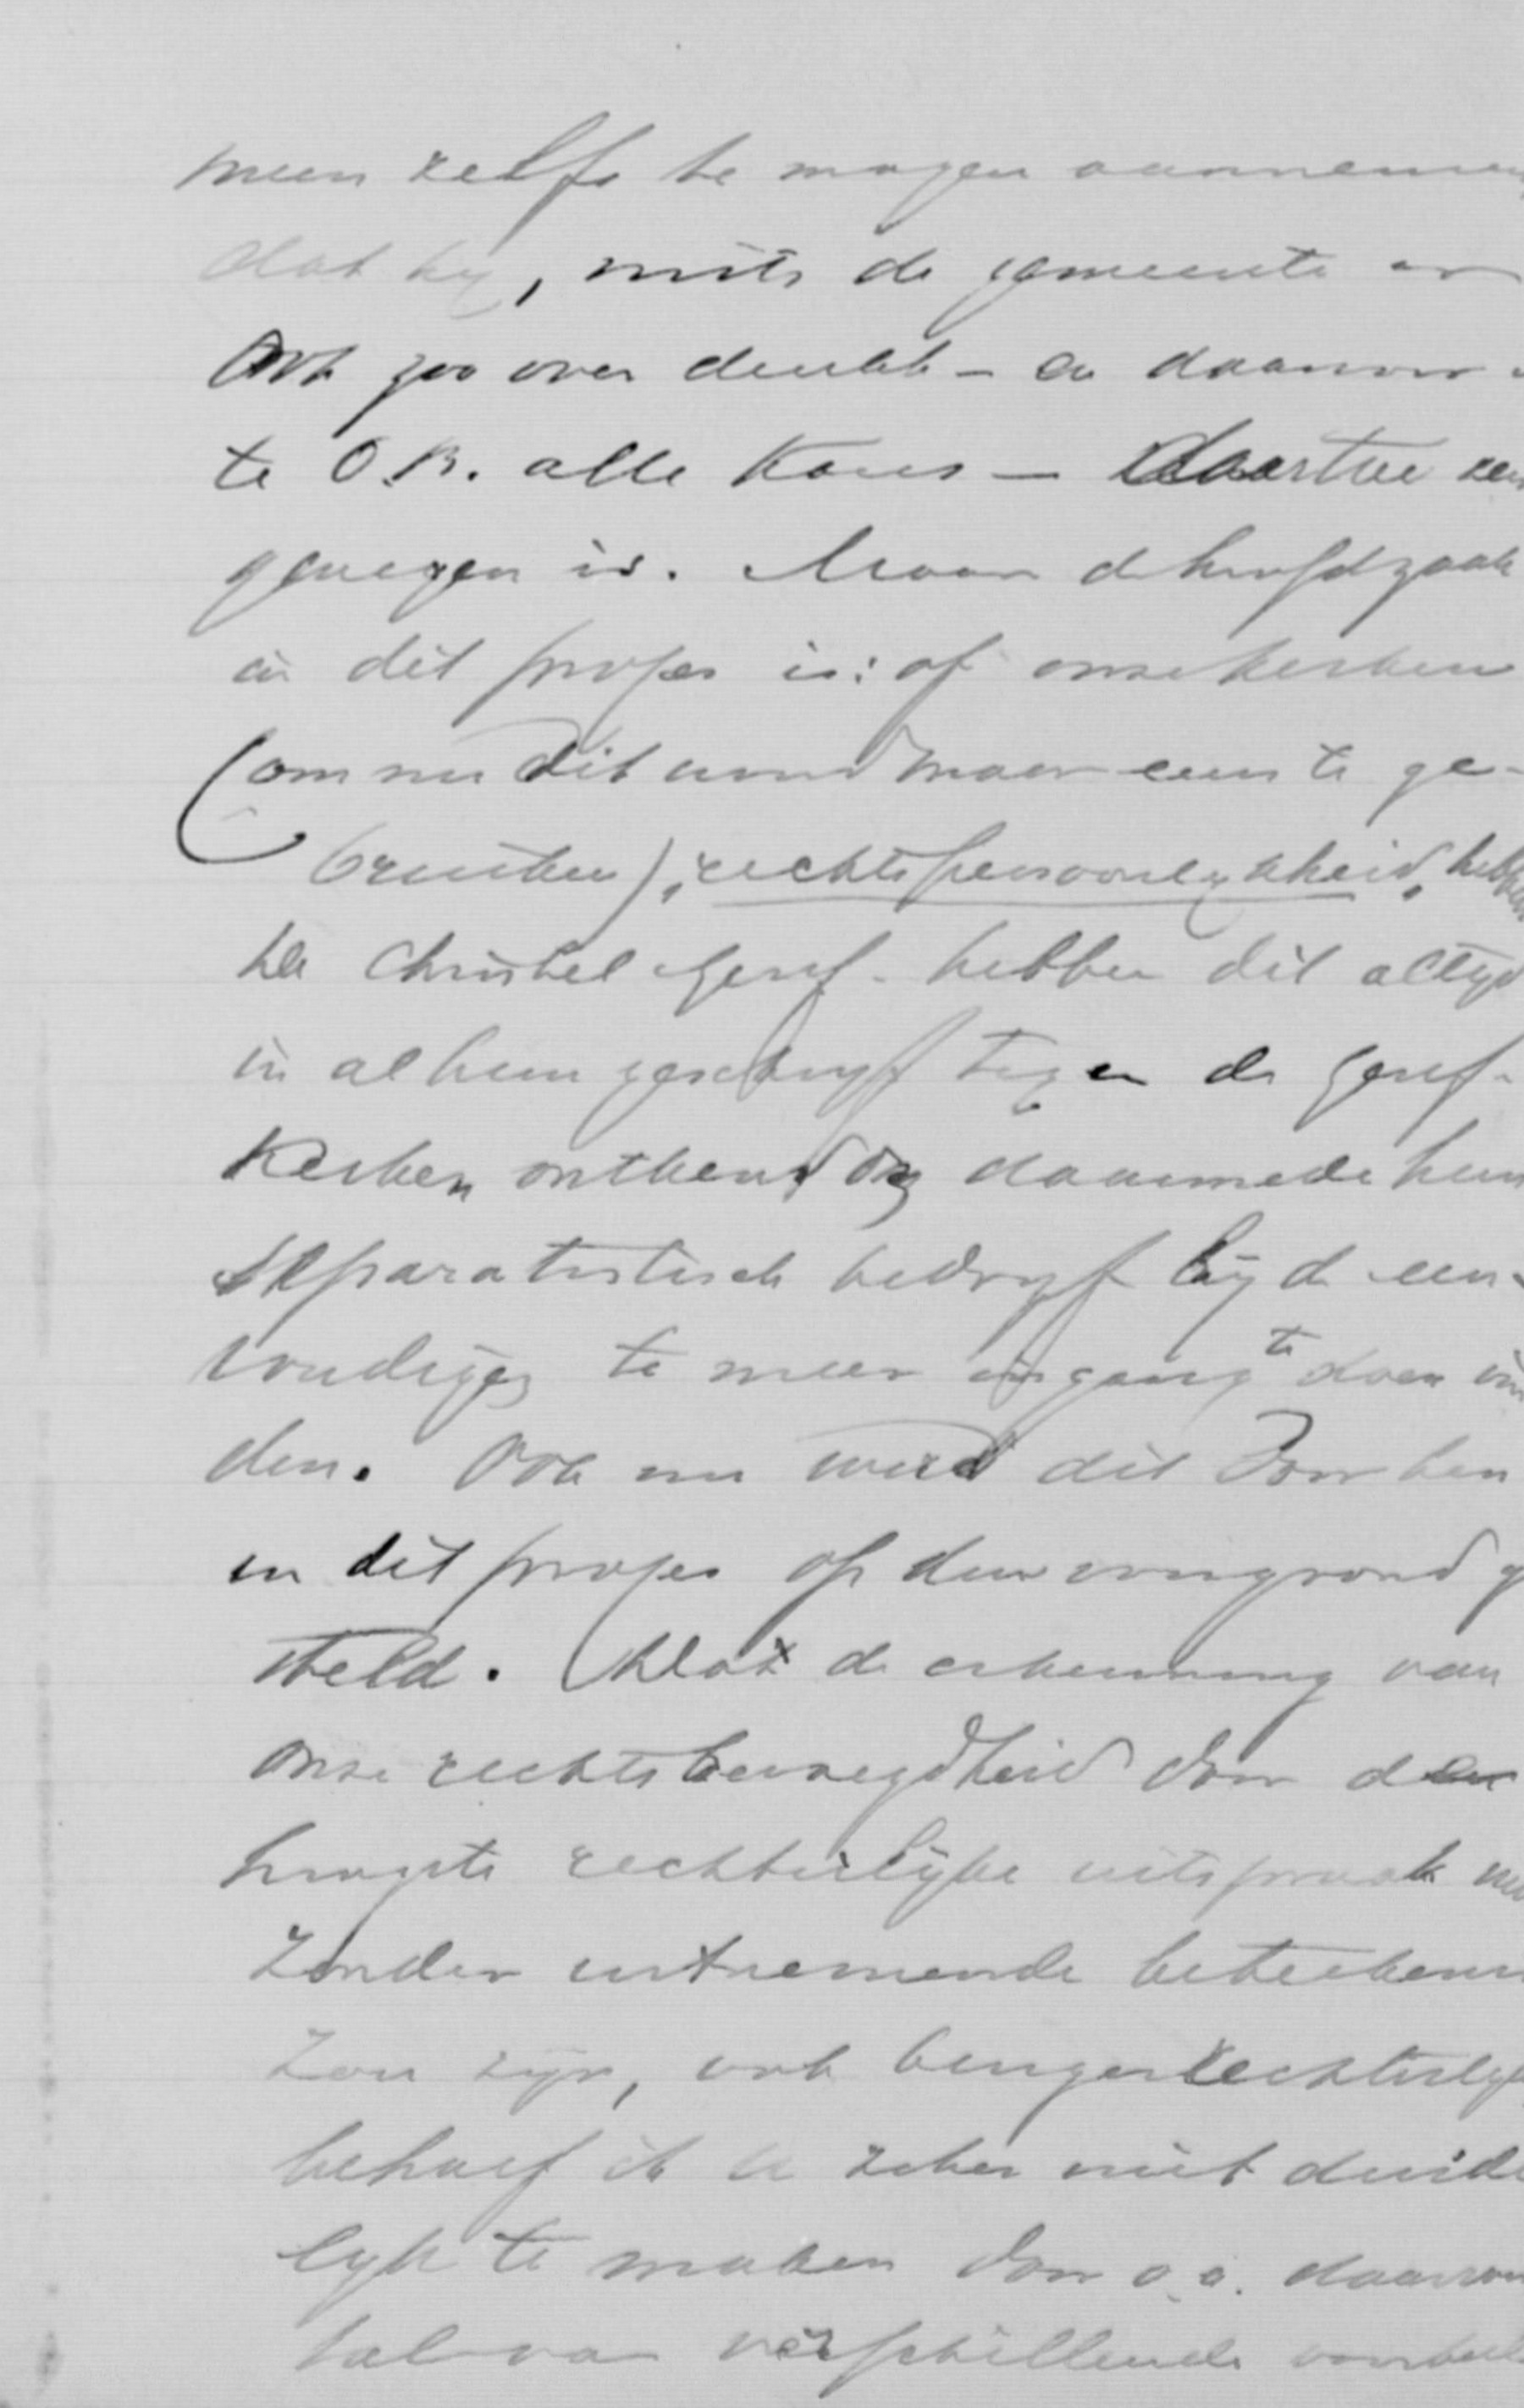 meen zelfs te mogen aannemen
dat hij, mits de gemeente er
ook zoo over denkt – en daarvoor
te O.B. alle kans – daartoe
genegen is. Maar de hoofdzaak
in dit proces is: of onze kerken
(om nu dit woord maar eens te ge-
bruiken) „rechtspersoonlykheid" hebben
De Christel Geref. hebben dit altyd
in al hun geschryf tegen de Geref.
Kerken ontkend om daarmede hun
separatistisch bedryf by de een-
voudigen te meer ingang te doen vin
den. Ook nu werd dit door hen
in dit proces op den voorgrond ge
steld. Dat de erkenning van
onze rechtsbevoegdheid door de
hoogste rechterlijke uitspraak
zonder uitnemende beteekenis
zou zijn, ook burgerrechterlyk
behoef ik U zeker niet duide
lyk te maken door o.a. daarvan
tal van verschillende voorbeel